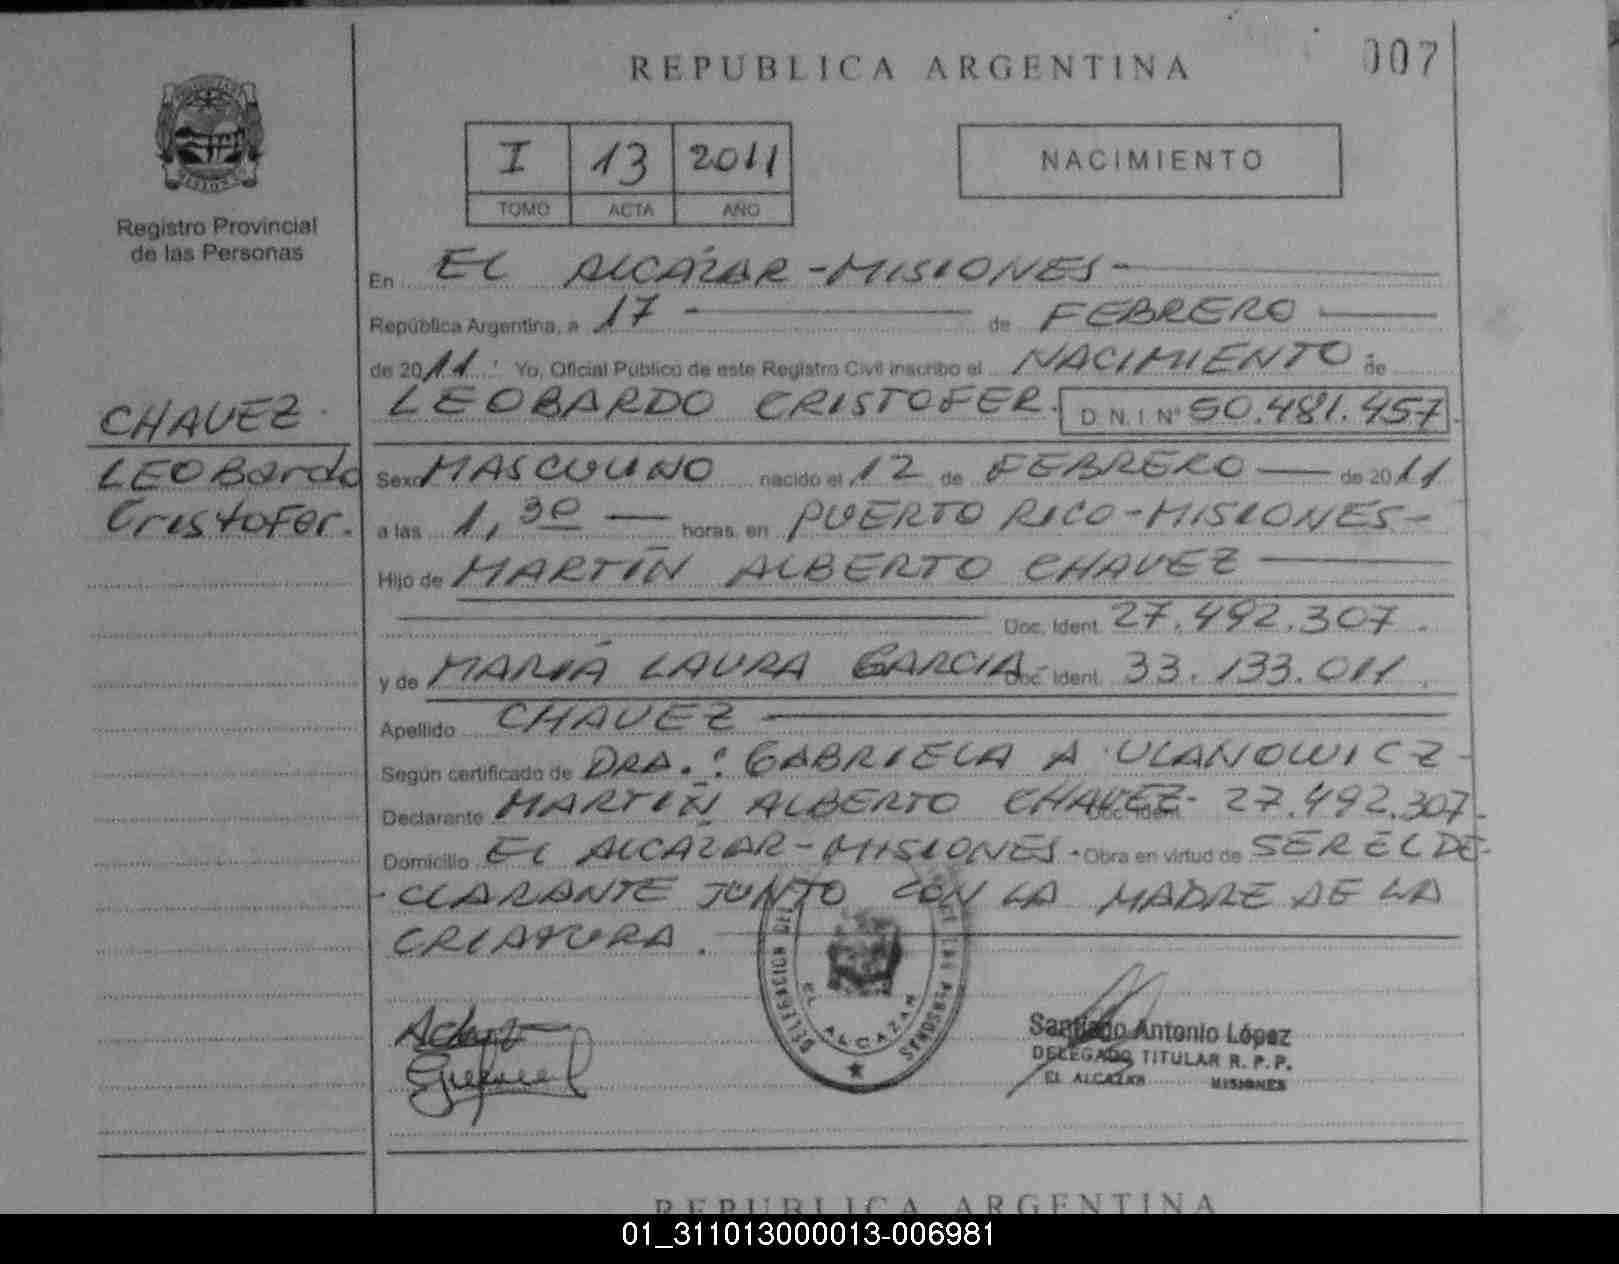 REPUBLICA ARGENTINA
007
I 13 2011
TOMO ACTA AÑO
NACIMIENTO
MISIONES
Registro Provincial
de las Personas
En EL ALCÁZAR-MISIONES-
República Argentina, a 17 - de FEBRERO
de 2011. Yo, Oficial Público de este Registro Civil inscribo el NACIMIENTO de
LEOBARDO CRISTOFER. D.N.I Nº 50.481.457.
CHAVEZ
LEOBardo
CristoFer.
Sexo MASCULINO nacido el 12 de FEBRERO — de 2011
a las 1,30 — horas, en PUERTO RICO-MISIONES-
Hijo de MARTÍN ALBERTO CHAVEZ
Doc. Ident. 27.492.307.
y de MARÍA LAURA GARCIA- Doc. Ident. 33.133.011.
Apellido CHAVEZ
Según certificado de DRA.: GABRIELA A ULANOWICZ-
Declarante MARTÍN ALBERTO CHAVEZ- Doc. Ident. 27.492.307-
Domicilio EL ALCÁZAR-MISIONES. Obra en virtud de SER EL DE-
-CLARANTE JUNTO CON LA MADRE DE LA
CRIATURA.
DELEGACION DEL DE LAS PERSONAS
EL ALCAZAR
Santiago Antonio López
DELEGADO TITULAR R. P. P.
EL ALCAZAR MISIONES
REPUBLICA ARGENTINA
01_311013000013-006981